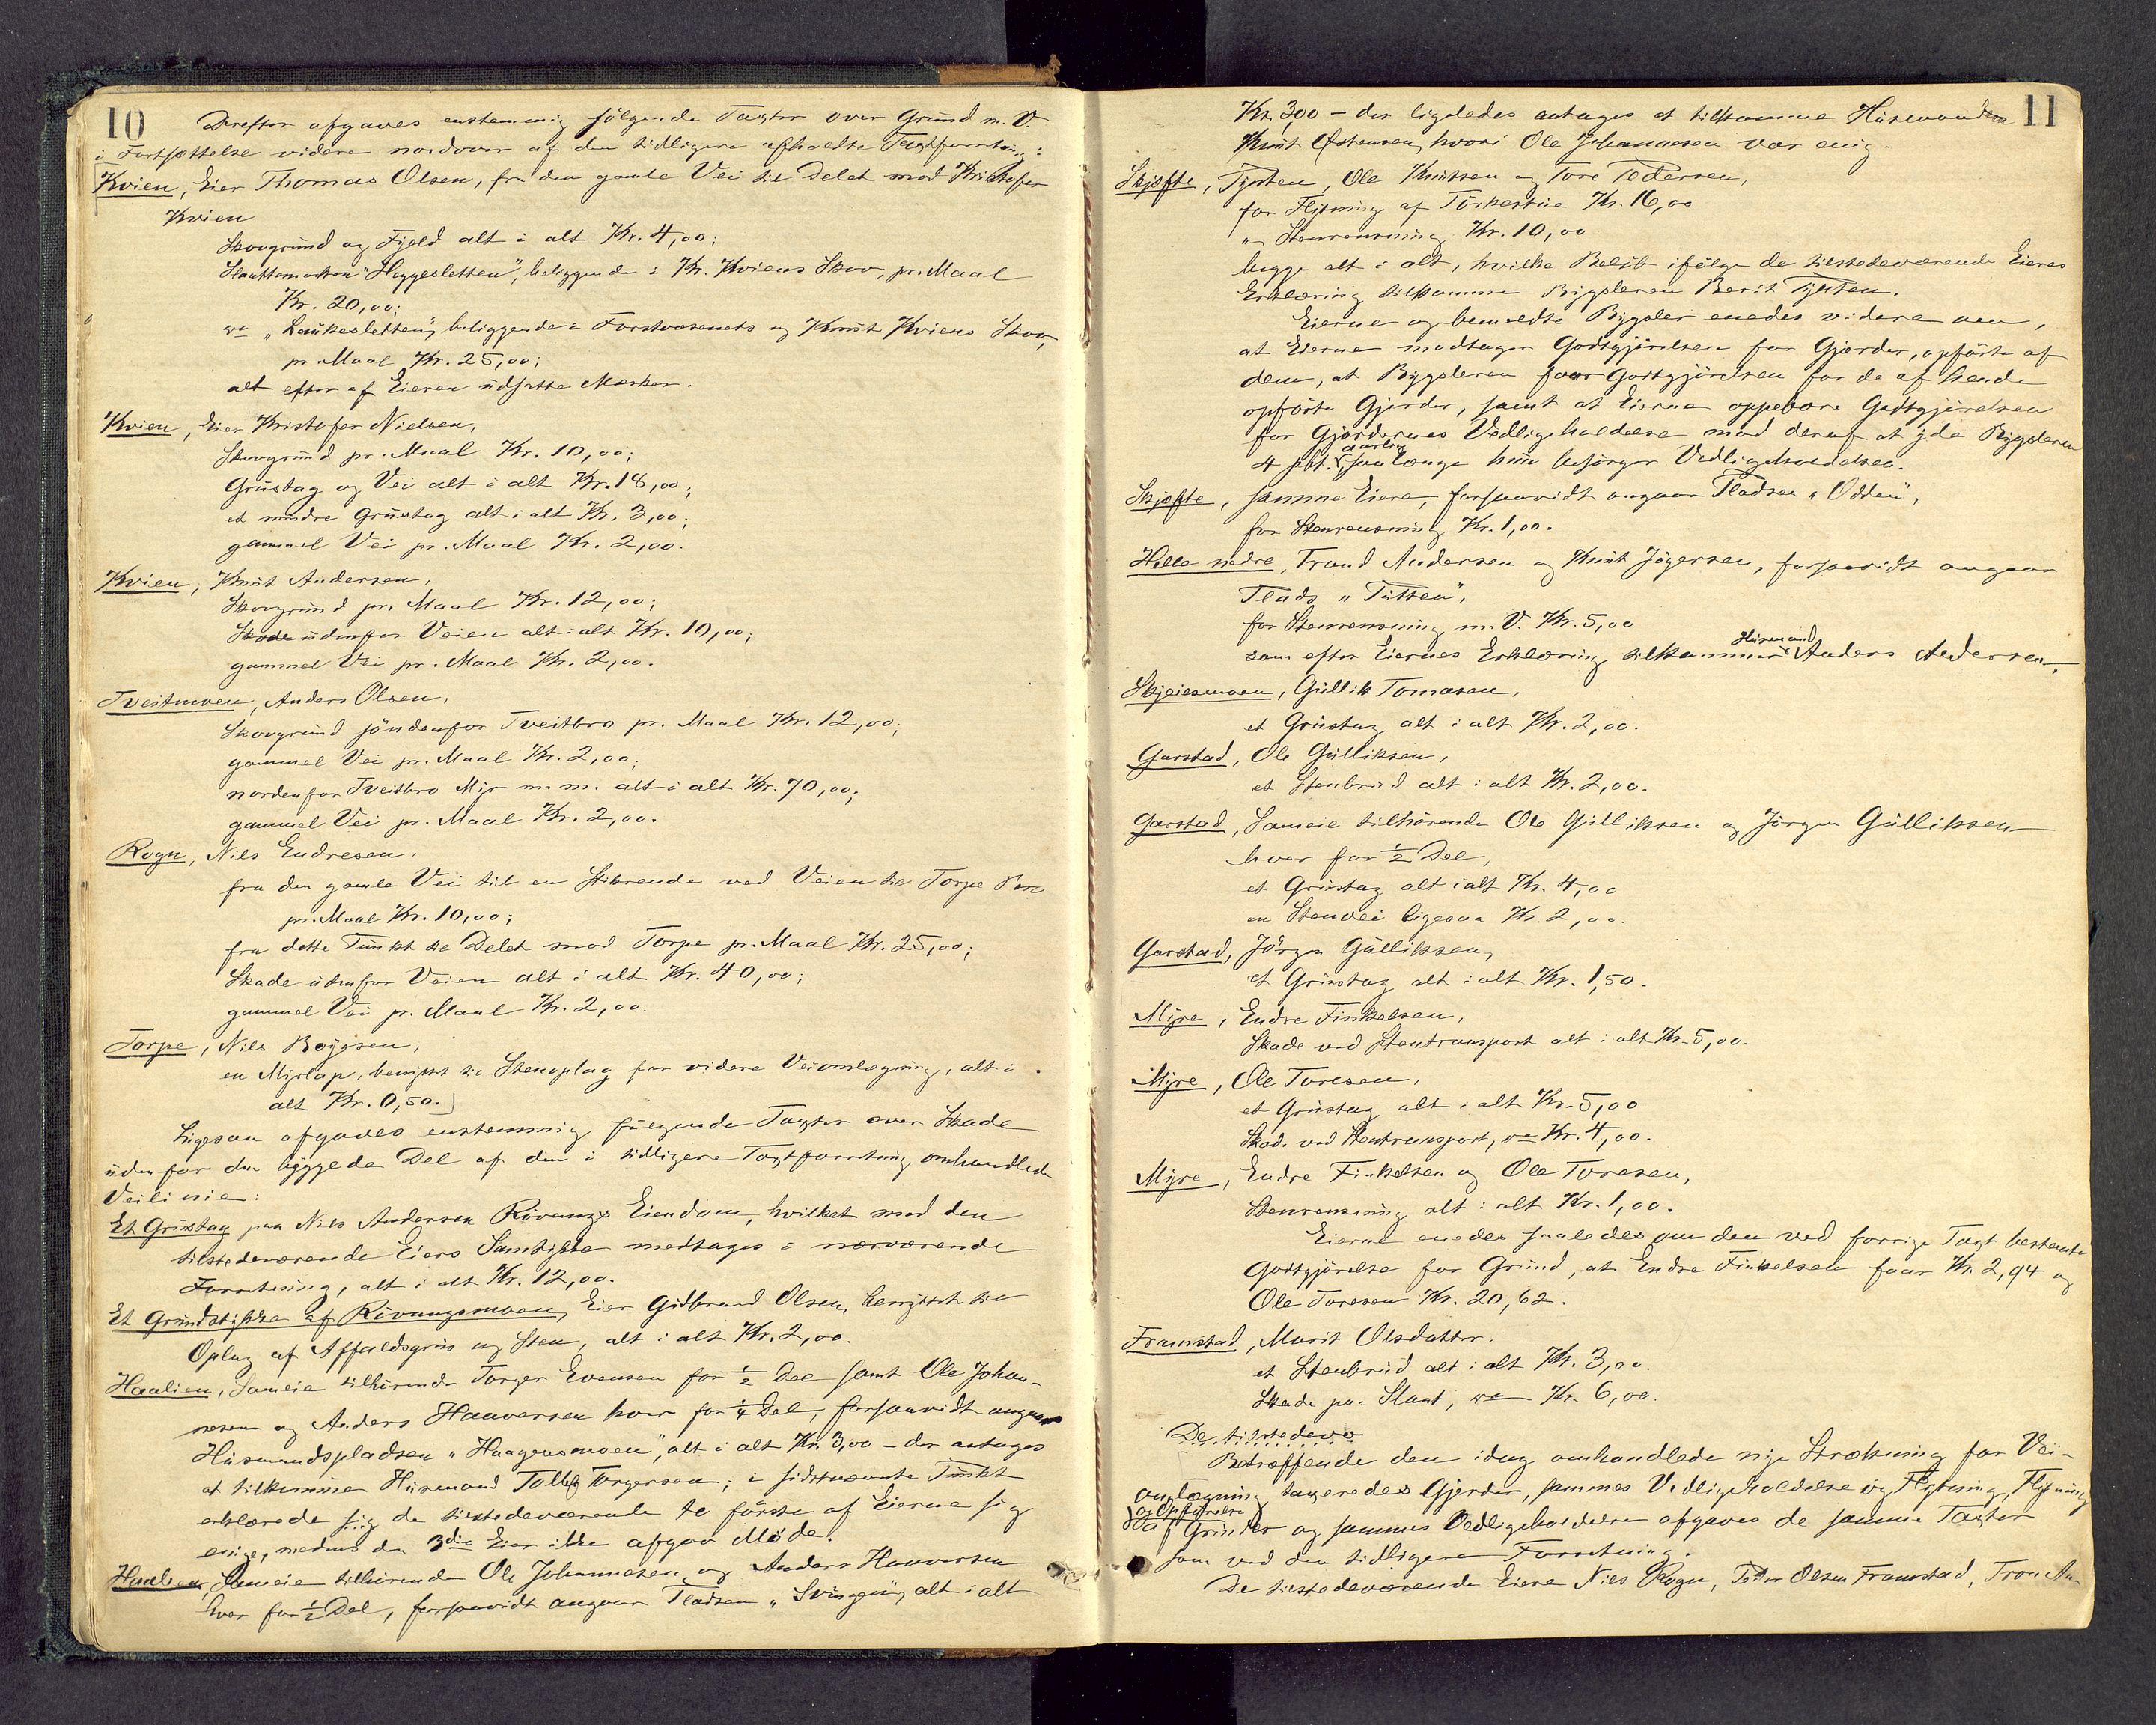 10
Derefter afgaves enstemmig følgende Taxter over Grund m. V.
i Fortsættelse videre nordover af den tidligere afholdte Taxtforretning:
Kvien, Eier Thomas Olsen, fra den gamle Vei til Delet mod Kristofer
Kvien
Skovgrund og Fjeld alt i alt Kr. 4,00;
Slaattemarken "Heggesletten", beliggende i Kr. Kviens Skov, pr. Maal
Kr. 20,00;
"Laukesletten", beliggende i Forstvæsenets og Knut Kviens Skov,
pr. Maal Kr. 25,00;
alt efter af Eieren udsatte Mærker.
Kvien, Eier Kristofer Nielsen,
Skovgrund pr. Maal Kr. 10,00;
Grustag og Vei alt i alt Kr. 18,00;
et mindre Grustag alt i alt Kr. 3,00;
gammel Vei pr. Maal Kr. 2,00.
Kvien, Knut Andersen,
Skovgrund pr. Maal Kr. 12,00;
Skade udenfor Veien alt i alt Kr. 10,00;
gammel Vei pr. Maal Kr. 2,00.
Tveitmoen, Anders Olsen,
Skovgrund søndenfor Tveitbro pr. Maal Kr. 12,00;
gammel Vei pr. Maal Kr. 2,00;
nordenfor Tveitbro Myr m. m. alt i alt Kr. 70,00;
gammel Vei pr. Maal Kr. 2,00.
Rogn, Nils Endresen,
fra den gamle Vei til en Stikrende ved Veien til Torpe
pr. Maal Kr. 10,00;
fra dette Punkt til Delet mod Torpe pr. Maal Kr. 25,00;
Skade udenfor Veien alt i alt Kr. 40,00;
gammel Vei pr. Maal Kr. 2,00.
Torpe, Nils Boyesen,
en Myrlap, benyttet til Stenoplag for videre Veiomlægning, alt i
alt Kr. 0,50.
Ligesaa afgaves enstemmig følgende Taxter over Skade
udenfor den byggede Del af den i tidligere Taxtforretning omhandlede
Veilinie:
Et Grustag paa Nils Andersen Røvangs Eiendom, hvilket med den
tilstedeværende Eiers Samtykke medtages i nærværende
Forretning, alt i alt Kr. 12,00.
Et Grundstykke af Røvangsmoen, Eier Gudbrand Olsen, benyttet til
Oplag af Affaldsgrus og Sten, alt i alt Kr. 2,00.
Haalien, Sameie tilhørende Torger Evensen for 1/2 Del samt Ole Johan-
nesen og Anders Haaversen hver for 1/4 Del, forsaavidt angaar
Husmandspladsen "Haagensmoen", alt i alt Kr. 3,00 - der antages
at tilkomme Husmand Tollef Torgersen; i sidstnævnte Punkt
erklærede sig de tilstedeværende to første af Eierne sig
enige, medens den 3die Eier ikke afgav Møde.
Haalien, Sameie tilhørende Ole Johannesen og Anders Haaversen
hver for 1/2 Del, forsaavidt angaar Pladsen "Svingen", alt i alt
11
Kr. 3,00 - der ligeledes antages at tilkomme Husmanden
Knut Østensen, hvori Ole Johannesen var enig.
Skjefte, Tysten, Ole Knutsen og Tore Pedersen,
for Flytning af Tørkestue Kr. 16,00
" Stenrensning Kr. 10,00
begge alt i alt, hvilke Beløb ifølge de tilstedeværende Eieres
Erklæring tilkomme Bygsleren Berit Tysten.
Eierne og bemeldte Bygsler enedes videre om,
at Eierne modtager Godtgjørelsen for Gjærder, opførte af
dem, at Bygsleren faar Godtgjørelsen for de af hende
opførte Gjerder, samt at Eierne oppebære Godtgjørelsen
for Gjærdernes Vedligeholdelse mod deraf at yde Bygsleren
4 pct. aarlig saalænge hun besørger Vedligeholdelsen.
Skjefte, samme Eiere, forsaavidt angaar Pladsen "Odden",
for Stenrensning Kr. 1,00.
Helle nedre, Trond Andersen og Knut Jøgersen, forsaavidt angaar
Plads "Tutten",
for Stenrensning m. V. Kr. 5,00
som efter Eiernes Erklæring tilkommer Husmand Anders Andersen.
Skjeiesmoen, Gullik Tomasen,
et Grustag alt i alt Kr. 2,00.
Garstad, Ole Gulliksen,
et Stenbrud alt i alt Kr. 2,00.
Garstad, Sameie tilhørende Ole Gulliksen og Jørgen Gulliksen
hver for 1/2 Del,
et Grustag alt i alt Kr. 4,00
en Stenvei ligesaa Kr. 2,00.
Garstad, Jørgen Gulliksen,
et Grustag alt i alt Kr. 1,50.
Myre, Endre Finkelsen,
Skade ved Stentransport alt i alt Kr. 5,00.
Myre, Ole Toresen,
et Grustag alt i alt Kr. 5,00
Skade ved Stentransport, Kr. 4,00.
Myre, Endre Finkelsen og Ole Toresen,
Stenrensning alt i alt Kr. 1,00.
Eierne enedes saaledes om den ved forrige Taxt bestemte
Godtgjørelse for Grund, at Endre Finkelsen faar Kr. 2,94 og
Ole Toresen Kr. 20,62.
Framstad, Marit Olsdatter.
et Stenbrud alt i alt Kr. 3,00.
Skade paa Slaat, Kr. 6,00.
De tilstedevæ
Betræffende den idag omhandlede nye Strækning for Vei-
omlægning taxeredes Gjerder, sammes Vedligeholdelse og Flytning, Flytning
og Opførelse af Grinder og sammes Vedligeholdelse afgaves de samme Taxter
som ved den tidligere Forretning.
De tilstedeværende Eiere Nils Rogn, Peder Olsen Framstad, Tron An-